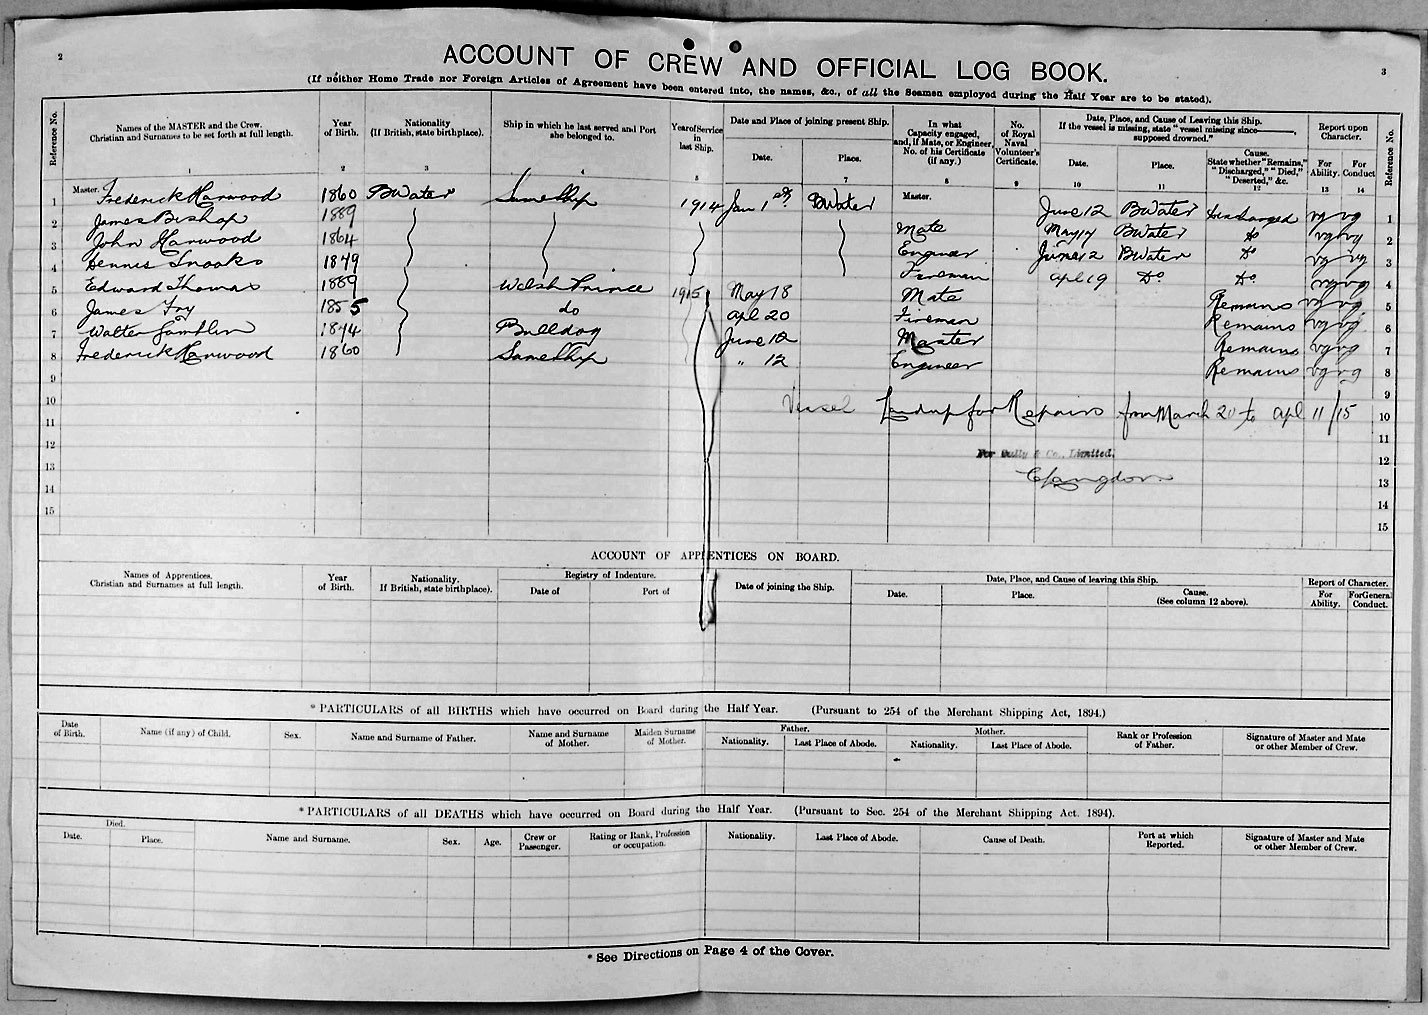 2
3
ACCOUNT OF CREW AND OFFICIAL LOG BOOK.
(If neither Home Trade nor Foreign Articles of Agreement have been entered into, the names, &c., of all the Seamen employed during the Half Year are to be stated).
Reference No. Names of the MASTER and the Crew. Christian and Surnames to be set forth at full length. Year of Birth. Nationality (If British, state birthplace). Ship in which he last served and Port she belonged to. Year of Service in last Ship. Date and Place of joining present Ship. Date. Place. In what Capacity engaged, and, if Mate, or Engineer, No. of his Certificate (if any.) No. of Royal Naval Volunteer's Certificate. Date, Place, and Cause of Leaving this Ship. If the vessel is missing, state "vessel missing since ———, supposed drowned." Date. Place. Cause. State whether "Remains," "Discharged," "Died," "Deserted," &c. Report upon Character. For Ability. For Conduct Reference No.
1 2 3 4 5 6 7 8 9 10 11 12 13 14
1 Master. Frederick Harwood 1860 BWater Same Ship 1914 Jan 1st BWater Master. June 12 BWater Discharged vg vg 1
2 James Bishop 1889 Mate May 17 BWater do vg vg 2
3 John Harwood 1864 Engineer June 12 BWater Do vg vg 3
4 Dennis Snooks 1849 Fireman apl 19 Do Do vg vg 4
5 Edward Thomas 1889 Welsh Prince 1915 May 18 Mate Remains vg vg 5
6 James Fry 1855 do apl 20 Fireman Remains vg vg 6
7 Walter Gamblin 1874 Bulldog June 12 Master Remains vg vg 7
8 Frederick Harwood 1860 Same Ship " 12 Engineer Remains vg vg 8
9 9
10 Vessel Laid up for Repairs from March 20 to apl 11/15 10
11 11
12 For Sully & Co., Limited. 12
13 C Langdon 13
14 14
15 15
ACCOUNT OF APPRENTICES ON BOARD.
Names of Apprentices. Christian and Surnames at full length. Year of Birth. Nationality. If British, state birthplace). Registry of Indenture. Date of Port of Date of joining the Ship. Date, Place, and Cause of leaving this Ship. Date. Place. Cause. (See column 12 above). Report of Character. For Ability. For General Conduct.
* PARTICULARS of all BIRTHS which have occurred on Board during the Half Year. (Pursuant to 254 of the Merchant Shipping Act, 1894.)
Date of Birth. Name (if any) of Child. Sex. Name and Surname of Father. Name and Surname of Mother. Maiden Surname of Mother. Father. Nationality. Last Place of Abode. Mother. Nationality. Last Place of Abode. Rank or Profession of Father. Signature of Master and Mate or other Member of Crew.
* PARTICULARS of all DEATHS which have occurred on Board during the Half Year. (Pursuant to Sec. 254 of the Merchant Shipping Act. 1894).
Died. Date. Place. Name and Surname. Sex. Age. Crew or Passenger. Rating or Rank, Profession or occupation. Nationality. Last Place of Abode. Cause of Death. Port at which Reported. Signature of Master and Mate or other Member of Crew.
* See Directions on Page 4 of the Cover.